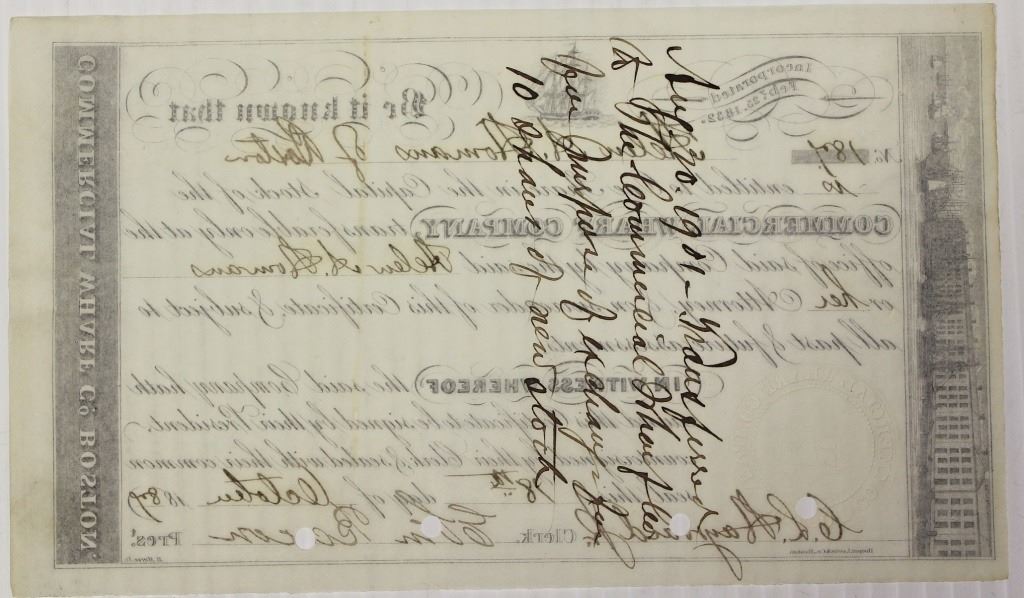 30. Transferred
to The Commercial Wharf
for purpose of exchange for
10 Shares of new stock
COMMERCIAL WHARF Co. BOSTON.
Incorporated
Feby. 25. 1832.
Be it known that
No. 187 Homans of Boston
entitled to in the Capital Stock of the
COMMERCIAL WHARF COMPANY, transferable only at the
office of said Company by the said Helen Homans
or her Attorney on surrender of this Certificate & subject to
all past & future assessments.
IN WITNESS WHEREOF the said Company hath
this Certificate to be signed by their President,
countersigned by their Clerk & sealed with their common
seal this 8th day of October 1887
Clerk. Pres't.